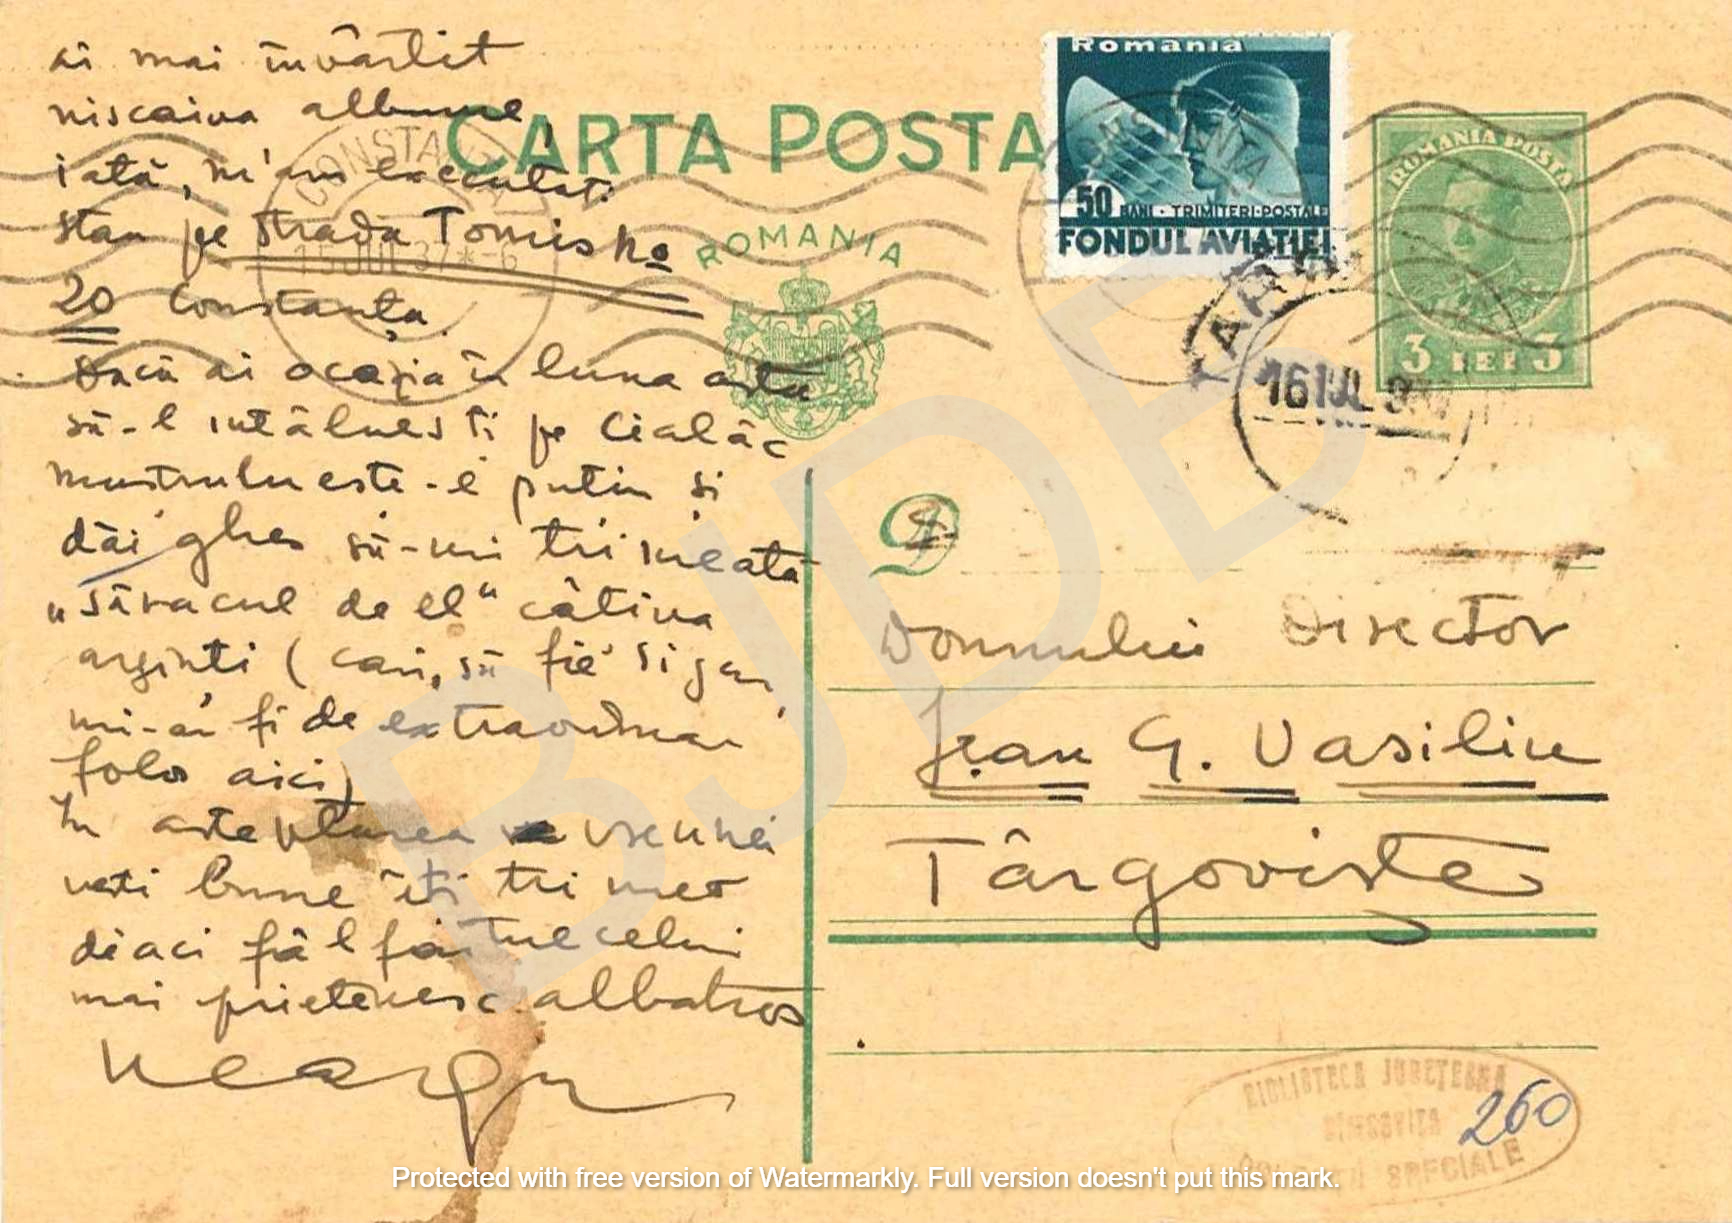 ai mai învârtit
niscaiva albume,
iată, m'am executat:
stau pe strada Tomis No
20 Constanța.
Dacă ai ocazia în luna asta
să-l întâlnesti pe Cialâc
mustruluește-l puțin și
dăi ghes să-mi trimeată
„săracul de el" câtiva
arginti (cari, să fie' si
mi-ar fi de extraordinar
folos aici)
În asteptarea vreunei
vesti bune îti trimeo
deaci fâlfâitul celui
mai prietenesc albatros
Neagu
CARTA POSTA
ROMANIA
CONSTANȚA
15 JUL 37 *-6
Romania
50 BANI · TRIMITERI·POSTALE
FONDUL AVIAȚIEI
ROMANIA POSTA
3 LEI 3
16 IUL 937
D
Domnului Director
Jean G. Vasiliu
Târgoviște
BIBLIOTECA JUDEȚEANĂ
DÎMBOVIȚA
SPECIALE
260
BJDB
Protected with free version of Watermarkly. Full version doesn't put this mark.